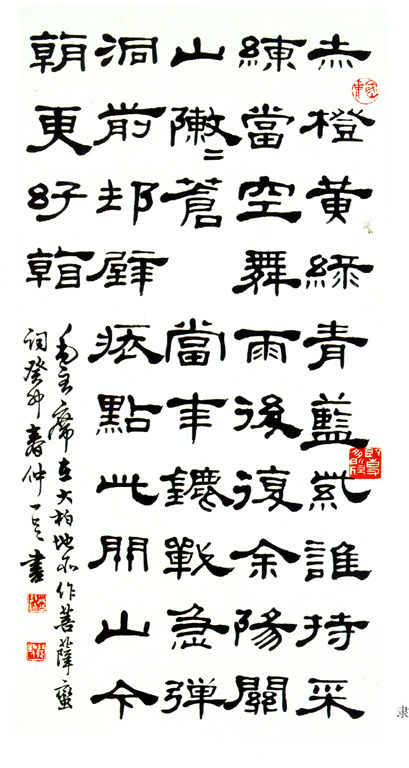 赤橙黄緑青藍紫誰持采
練當空舞雨後復余陽關
山敶〻蒼當年鏖戰急弹
洞前邨壁裝點此関山今
朝更好看
毛主席在大柏地所作菩薩蠻
詞癸卯春仲書
隶